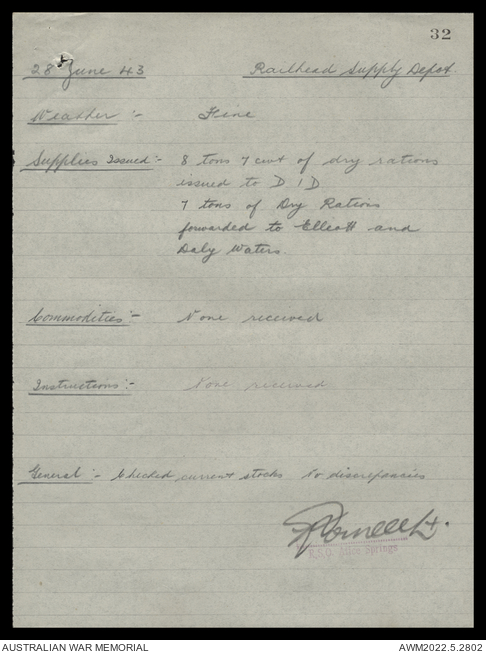 32
28 June 43 Railhead Supply Depot.
Weather :- Fine
Supplies Issued :- 8 tons 7 cwt of dry rations
issued to D I D
7 tons of Dry Rations
forwarded to Elliott and
Daly Waters.
Commodities :- None received
Instructions :- None received
General :- Checked current stocks No discrepancies
R.S.O. Alice Springs
AUSTRALIAN WAR MEMORIAL AWM2022.5.2802